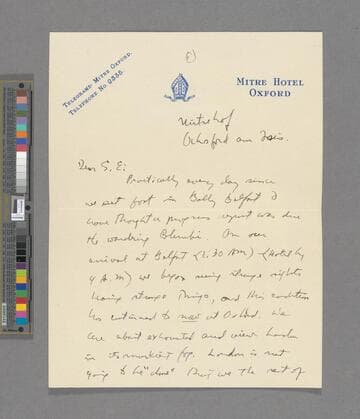 TELEGRAMS: MITRE OXFORD.
TELEPHONE No. 2335.
MITRE HOTEL
OXFORD
Ochsford am
Dear S. E:
Practically every day since
we set foot in Belfast I
have thought a progress report was due
the wandering. On our
arrival at Belfast (2.30 AM) (Hotel by
4 A.M) we began seeing strange sights
hearing strange things, and this condition
has continued to now at Oxford. We
are about exhausted and view London
in its murkiest fog. London is not
going to be "done" by us the rest of